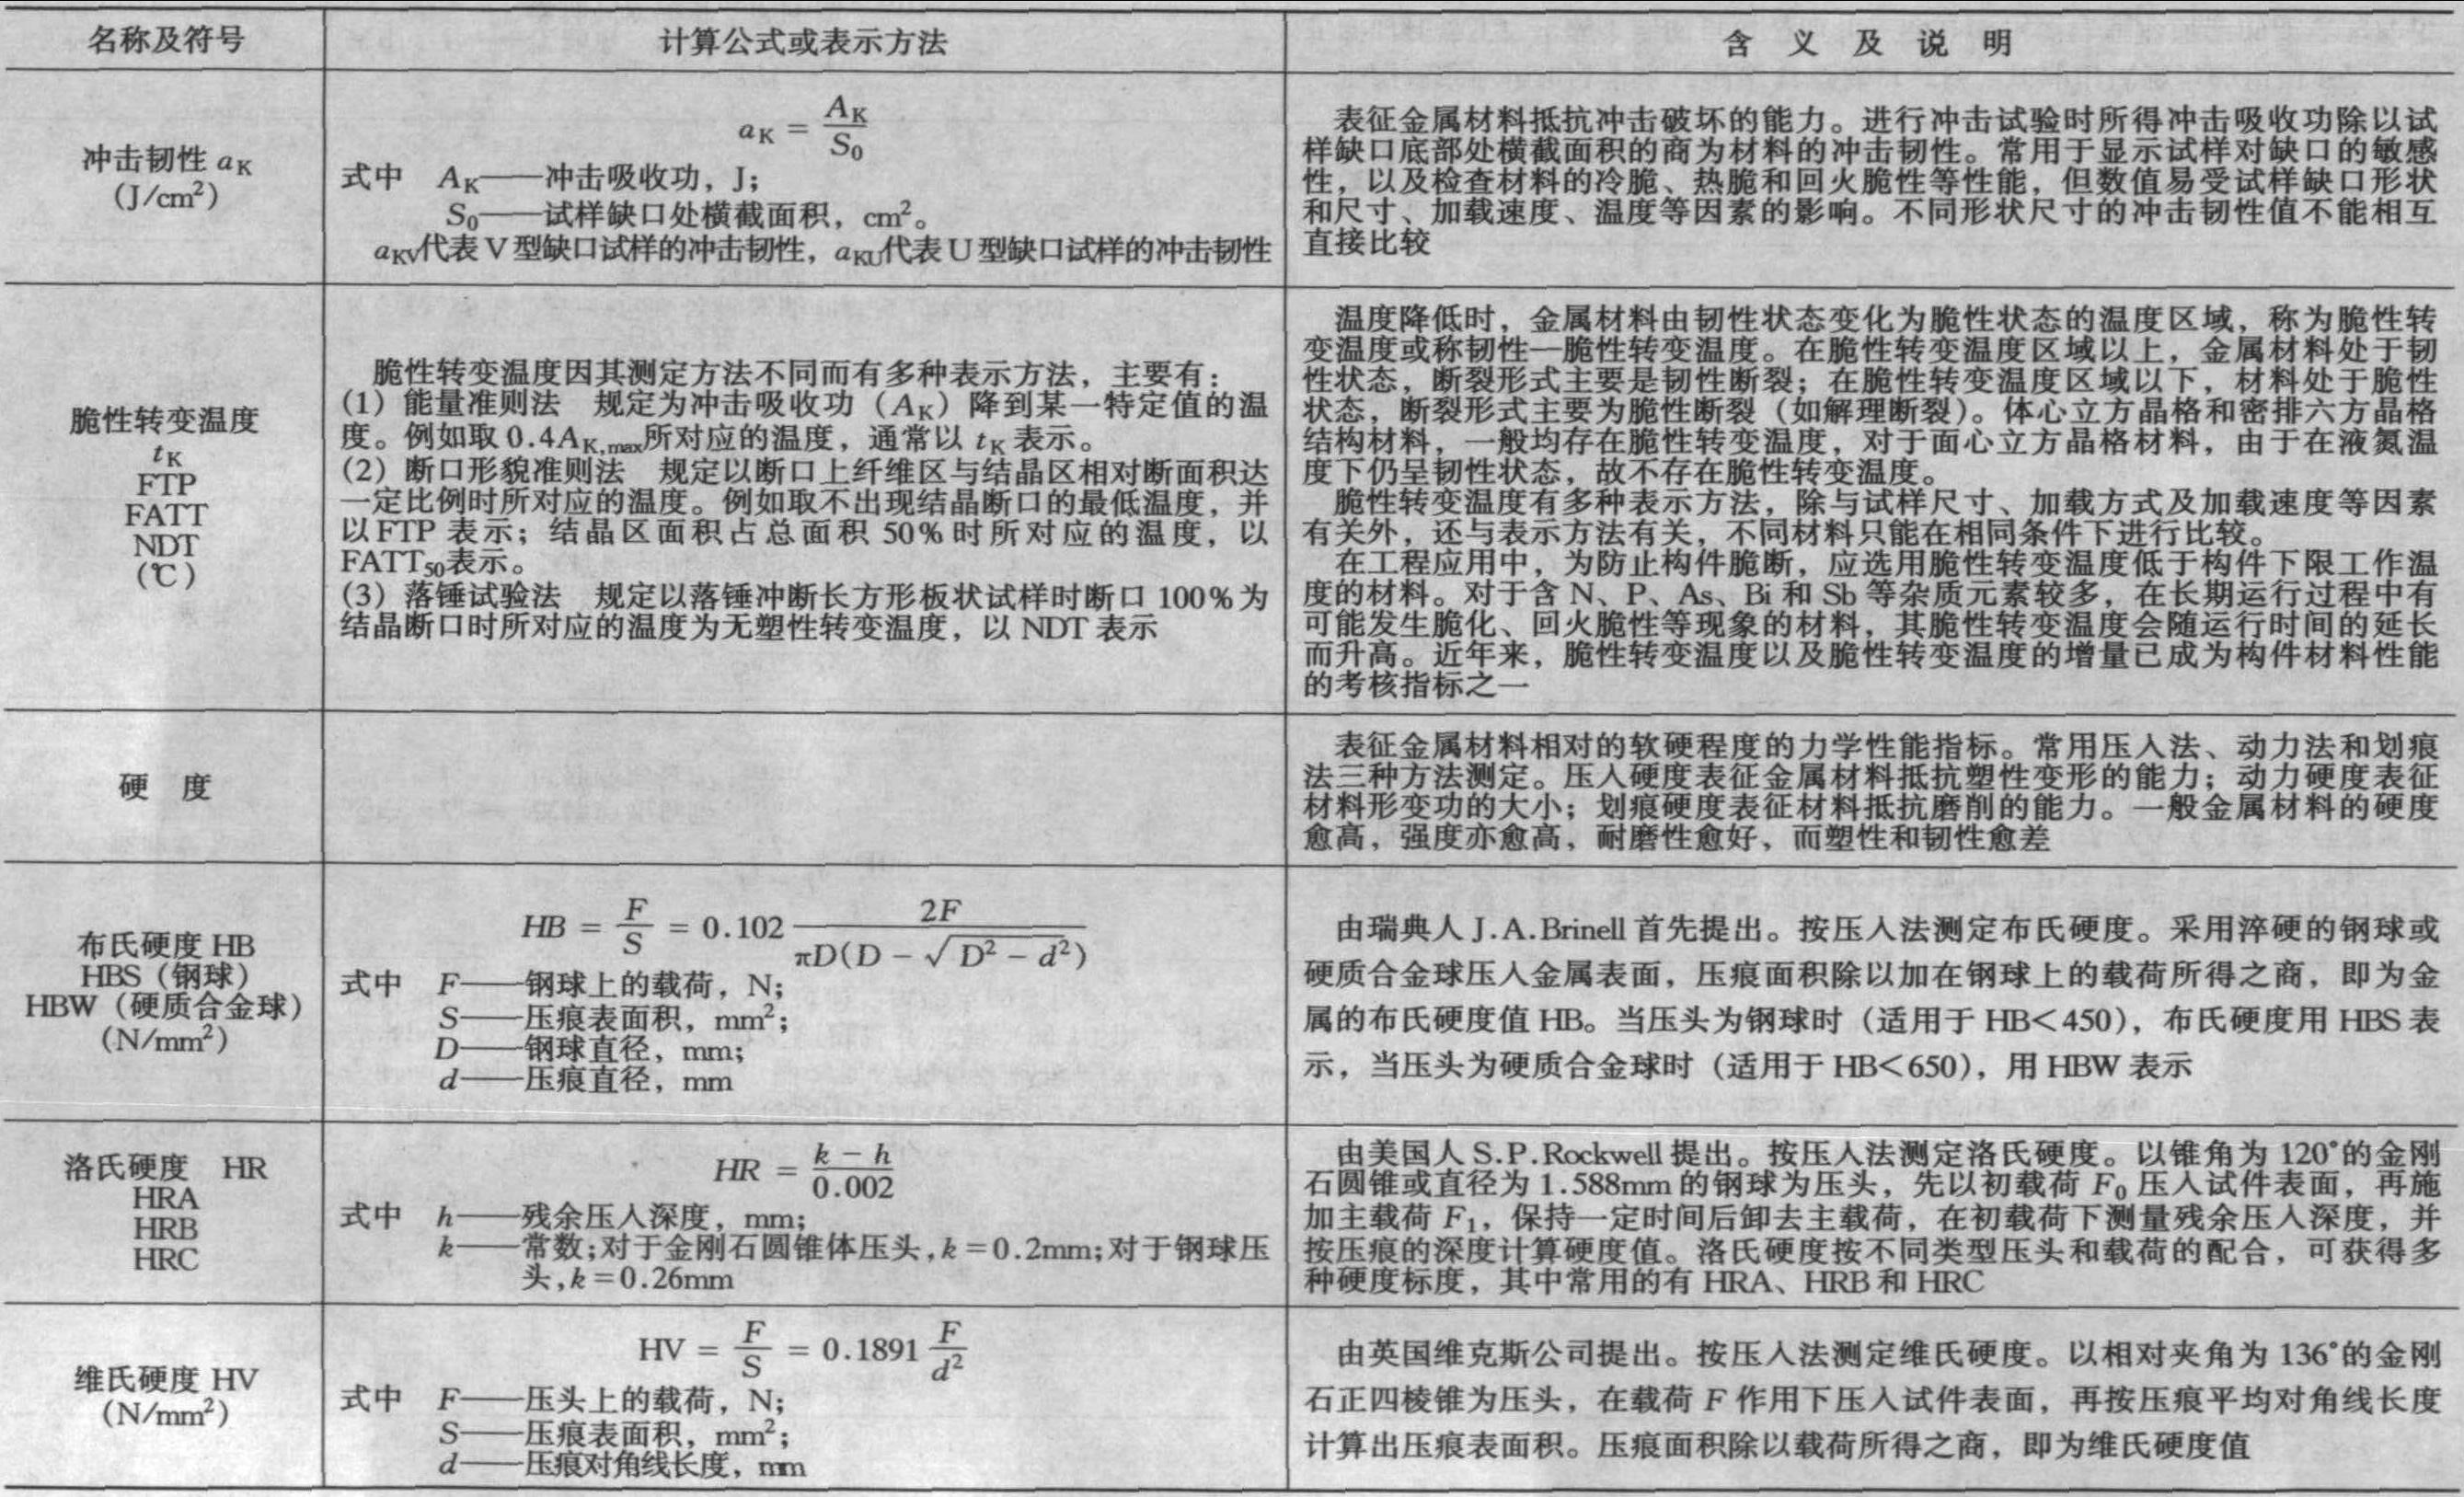 名称及符号
计算公式或表示方法
含 义 及 说 明
冲击韧性 aK
(J/cm²)
aK = AK/S0
式中 AK——冲击吸收功，J；
S0——试样缺口处横截面积，cm²。
aKV代表 V 型缺口试样的冲击韧性，aKU代表 U 型缺口试样的冲击韧性
表征金属材料抵抗冲击破坏的能力。进行冲击试验时所得冲击吸收功除以试
样缺口底部处横截面积的商为材料的冲击韧性。常用于显示试样对缺口的敏感
性，以及检查材料的冷脆、热脆和回火脆性等性能，但数值易受试样缺口形状
和尺寸、加载速度、温度等因素的影响。不同形状尺寸的冲击韧性值不能相互
直接比较
脆性转变温度
tK
FTP
FATT
NDT
(℃)
脆性转变温度因其测定方法不同而有多种表示方法，主要有：
(1) 能量准则法 规定为冲击吸收功（AK）降到某一特定值的温
度。例如取 0.4AK,max所对应的温度，通常以 tK 表示。
(2) 断口形貌准则法 规定以断口上纤维区与结晶区相对断面积达
一定比例时所对应的温度。例如取不出现结晶断口的最低温度，并
以 FTP 表示；结晶区面积占总面积 50% 时所对应的温度，以
FATT50表示。
(3) 落锤试验法 规定以落锤冲断长方形板状试样时断口 100% 为
结晶断口时所对应的温度为无塑性转变温度，以 NDT 表示
温度降低时，金属材料由韧性状态变化为脆性状态的温度区域，称为脆性转
变温度或称韧性—脆性转变温度。在脆性转变温度区域以上，金属材料处于韧
性状态，断裂形式主要是韧性断裂；在脆性转变温度区域以下，材料处于脆性
状态，断裂形式主要为脆性断裂（如解理断裂）。体心立方晶格和密排六方晶格
结构材料，一般均存在脆性转变温度，对于面心立方晶格材料，由于在液氮温
度下仍呈韧性状态，故不存在脆性转变温度。
脆性转变温度有多种表示方法，除与试样尺寸、加载方式及加载速度等因素
有关外，还与表示方法有关，不同材料只能在相同条件下进行比较。
在工程应用中，为防止构件脆断，应选用脆性转变温度低于构件下限工作温
度的材料。对于含 N、P、As、Bi 和 Sb 等杂质元素较多，在长期运行过程中有
可能发生脆化、回火脆性等现象的材料，其脆性转变温度会随运行时间的延长
而升高。近年来，脆性转变温度以及脆性转变温度的增量已成为构件材料性能
的考核指标之一
硬 度
表征金属材料相对的软硬程度的力学性能指标。常用压入法、动力法和划痕
法三种方法测定。压入硬度表征金属材料抵抗塑性变形的能力；动力硬度表征
材料形变功的大小；划痕硬度表征材料抵抗磨削的能力。一般金属材料的硬度
愈高，强度亦愈高，耐磨性愈好，而塑性和韧性愈差
布氏硬度 HB
HBS（钢球）
HBW（硬质合金球）
(N/mm²)
HB = F/S = 0.102 2F/(πD(D − √(D² − d²)))
式中 F——钢球上的载荷，N；
S——压痕表面积，mm²；
D——钢球直径，mm；
d——压痕直径，mm
由瑞典人 J.A.Brinell 首先提出。按压入法测定布氏硬度。采用淬硬的钢球或
硬质合金球压入金属表面，压痕面积除以加在钢球上的载荷所得之商，即为金
属的布氏硬度值 HB。当压头为钢球时（适用于 HB＜450），布氏硬度用 HBS 表
示，当压头为硬质合金球时（适用于 HB＜650），用 HBW 表示
洛氏硬度 HR
HRA
HRB
HRC
HR = (k − h)/0.002
式中 h——残余压入深度，mm；
k——常数；对于金刚石圆锥体压头，k = 0.2mm；对于钢球压
头，k = 0.26mm
由美国人 S.P.Rockwell 提出。按压入法测定洛氏硬度。以锥角为 120°的金刚
石圆锥或直径为 1.588mm 的钢球为压头，先以初载荷 F0 压入试件表面，再施
加主载荷 F1，保持一定时间后卸去主载荷，在初载荷下测量残余压入深度，并
按压痕的深度计算硬度值。洛氏硬度按不同类型压头和载荷的配合，可获得多
种硬度标度，其中常用的有 HRA、HRB 和 HRC
维氏硬度 HV
(N/mm²)
HV = F/S = 0.1891 F/d²
式中 F——压头上的载荷，N；
S——压痕表面积，mm²；
d——压痕对角线长度，mm
由英国维克斯公司提出。按压入法测定维氏硬度。以相对夹角为 136°的金刚
石正四棱锥为压头，在载荷 F 作用下压入试件表面，再按压痕平均对角线长度
计算出压痕表面积。压痕面积除以载荷所得之商，即为维氏硬度值